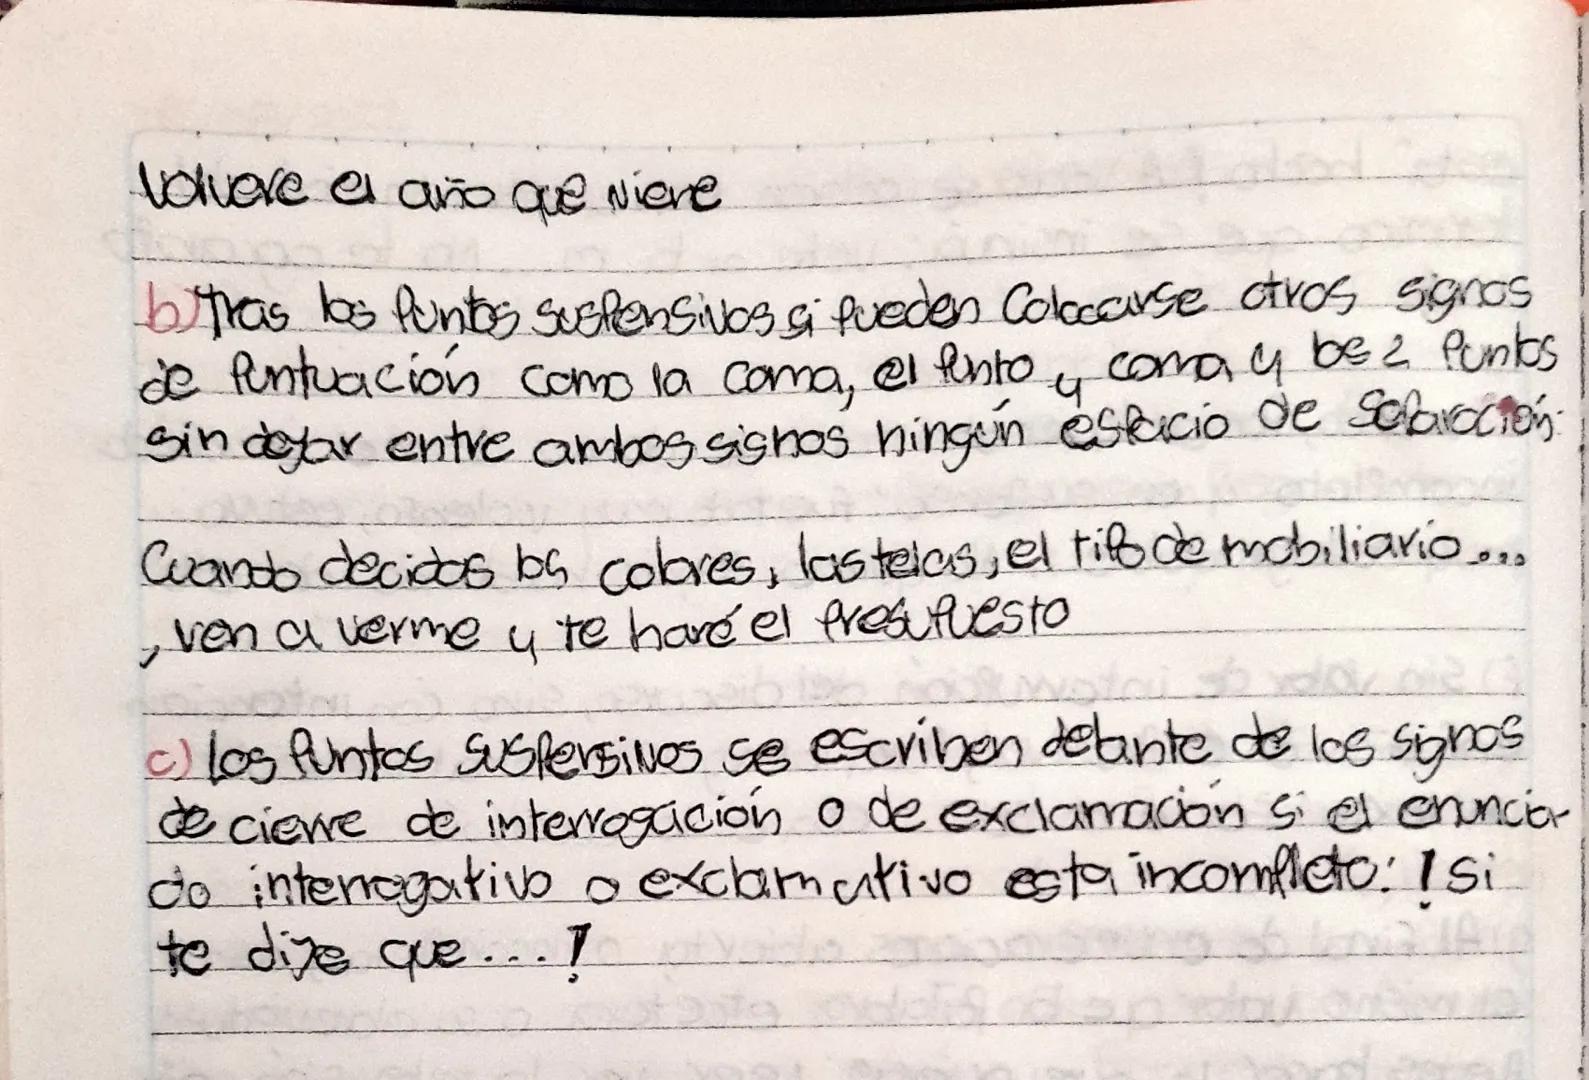 Volvere el año que viene
b) Tras los Puntos suspensivos si pueden Colocarse otros signos
de Puntuación como la coma, el Punto y coma y los 2 Puntos
sin dejar entre ambos signos ningún espacio de Separación.
Cuando decidas los colores, las telas, el tipo de mobiliario...
, ven a verme y te haré el presupuesto
c) los Puntos suspensivos se escriben delante de los signos
de cierre de interrogación o de exclamación si el enuncia-
do interrogativo o exclamativo esta incompleto: ! Si
te dije que...!